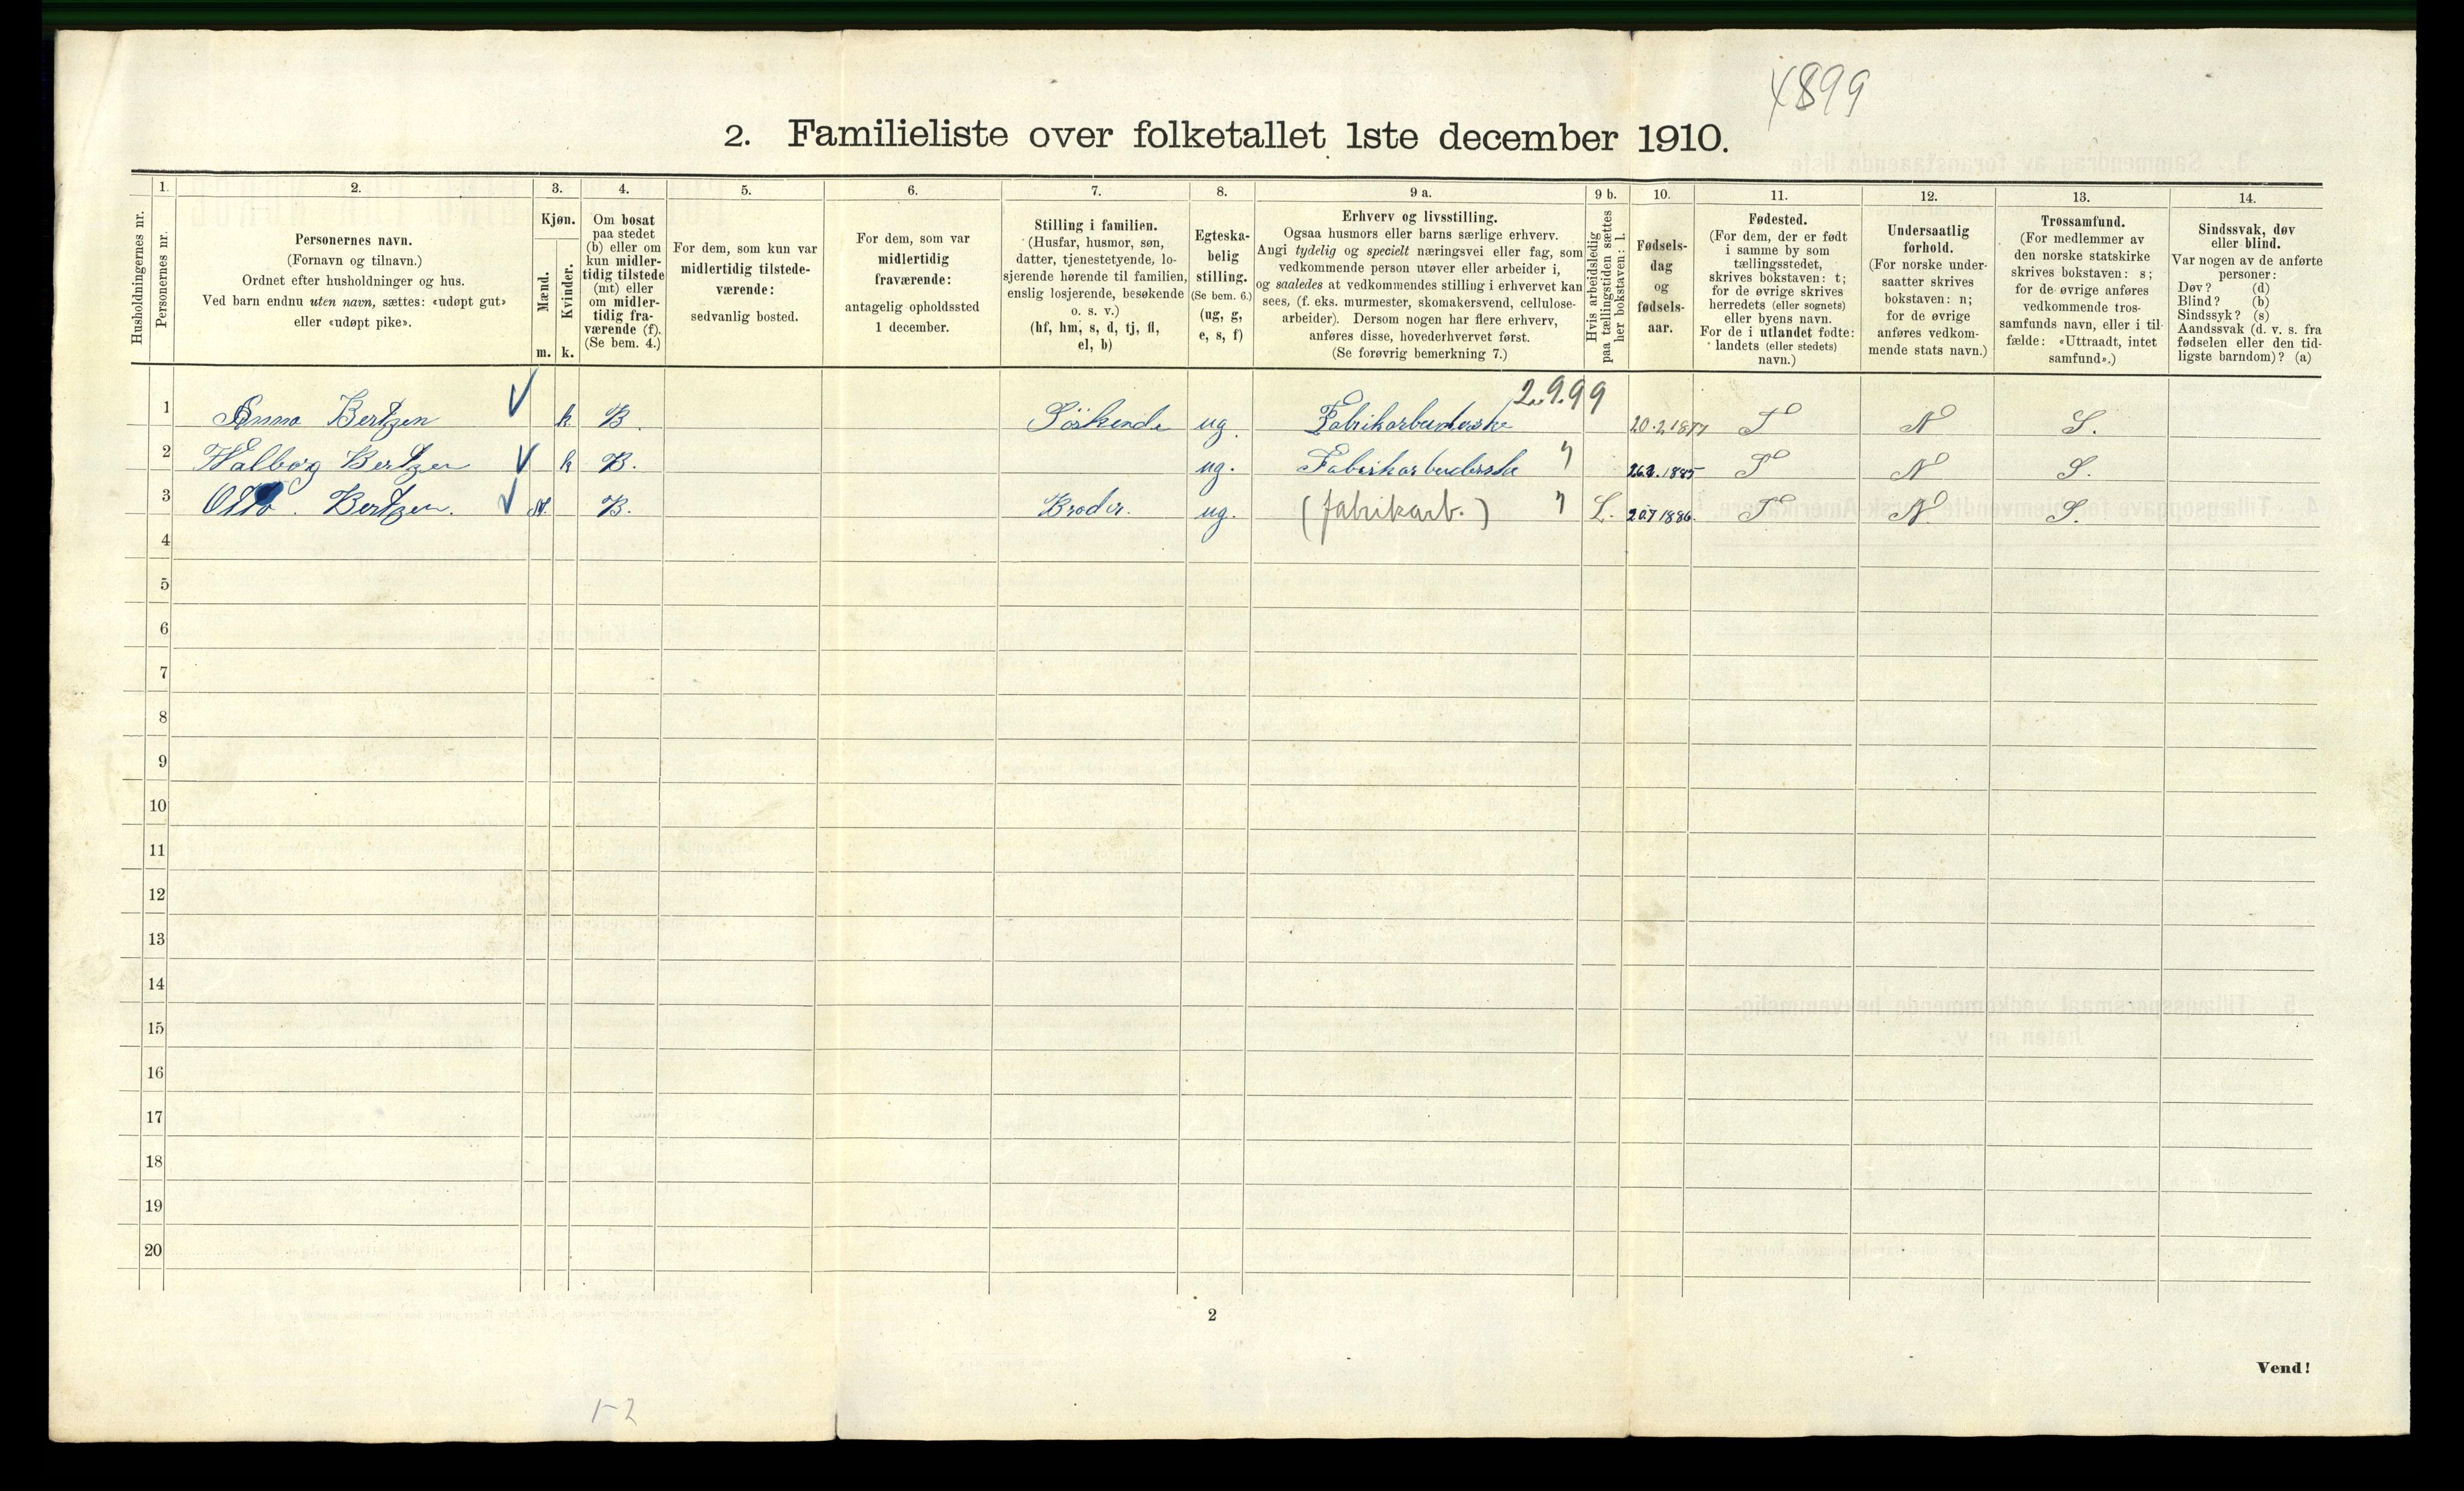 4899
2. Familieliste over folketallet 1ste december 1910.
Husholdningernes nr.
1.
Personernes nr.
2.
Personernes navn.
(Fornavn og tilnavn.)
Ordnet efter husholdninger og hus.
Ved barn endnu uten navn, sættes: «udøpt gut»
eller «udøpt pike».
3.
Kjøn.
Mænd.
m.
Kvinder.
k.
4.
Om bosat
paa stedet
(b) eller om
kun midler-
tidig tilstede
(mt) eller
om midler-
tidig fra-
værende (f).
(Se bem. 4.)
5.
For dem, som kun var
midlertidig tilstede-
værende:
sedvanlig bosted.
6.
For dem, som var
midlertidig
fraværende:
antagelig opholdssted
1 december.
7.
Stilling i familien.
(Husfar, husmor, søn,
datter, tjenestetyende, lo-
sjerende hørende til familien,
enslig losjerende, besøkende
o. s. v.)
(hf, hm, s, d, tj, fl,
el, b)
8.
Egteska-
belig
stilling.
(Se bem. 6.)
(ug, g,
e, s, f)
9 a.
Erhverv og livsstilling.
Ogsaa husmors eller barns særlige erhverv.
Angi tydelig og specielt næringsvei eller fag, som
vedkommende person utøver eller arbeider i,
og saaledes at vedkommendes stilling i erhvervet kan
sees, (f. eks. murmester, skomakersvend, cellulose-
arbeider). Dersom nogen har flere erhverv,
anføres disse, hovederhvervet først.
(Se forøvrig bemerkning 7.)
9 b.
Hvis arbeidsledig
paa tællingstiden sættes
her bokstaven: l.
10.
Fødsels-
dag
og
fødsels-
aar.
11.
Fødested.
(For dem, der er født
i samme by som
tællingsstedet,
skrives bokstaven: t;
for de øvrige skrives
herredets (eller sognets)
eller byens navn.
For de i utlandet fødte:
landets (eller stedets)
navn.)
12.
Undersaatlig
forhold.
(For norske under-
saatter skrives
bokstaven: n;
for de øvrige
anføres vedkom-
mende stats navn.)
13.
Trossamfund.
(For medlemmer av
den norske statskirke
skrives bokstaven: s;
for de øvrige anføres
vedkommende tros-
samfunds navn, eller i til-
fælde: «Uttraadt, intet
samfund».)
14.
Sindssvak, døv
eller blind.
Var nogen av de anførte
personer:
Døv? (d)
Blind? (b)
Sindssyk? (s)
Aandssvak (d. v. s. fra
fødselen eller den tid-
ligste barndom)? (a)
2.9.99
1 Anna Bertzen k B. Söskende ug. Fabrikarbeiderske 20.2 1877 T N S.
2 Walborg Bertzen k B. ug. Fabrikarbeiderske " 1885 T N S.
3 Otto. Bertzen. M. B. Broder. ug. (fabrikarb.) " L. 20.7 1886. T N. S.
4
5
6
7
8
9
10
11
12
13
14
15
16
17
18
19
20
2
Vend!
1-2